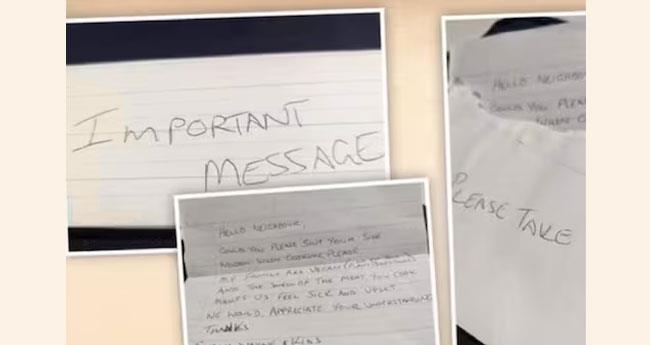 IMPORTANT
MESSAGE
HELLO NEIGHBOUR,
COULD YOU PLEASE SHUT YOUR SIDE
WINDOW WHEN COOKING, PLEASE
MY FAMILY ARE VEGAN
AND THE SMELL OF THE MEAT YOU COOK
MAKES US FEEL SICK AND UPSET.
WE WOULD APPRECIATE YOUR UNDERSTANDING
THANKS
& KIDS
HELLO NEIGHBO
COULD YOU PLEA
PLEASE TAKE